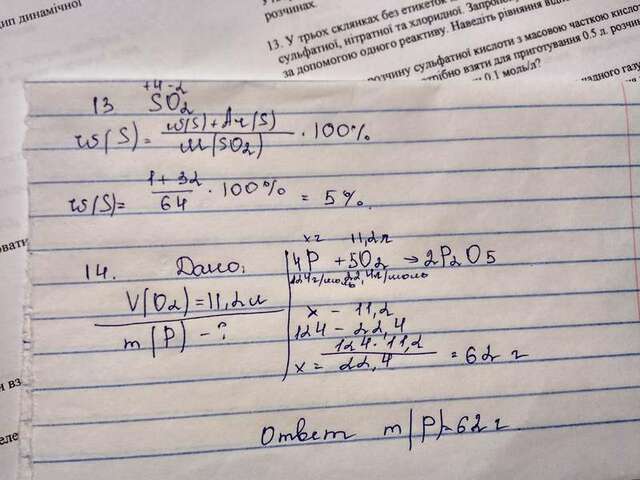 ип динамічної
розчинах.
13. У трьох склянках без етикеток
сульфатної, нітратної та хлоридної.
за допомогою одного реактиву. Наведіть рівняння
розчину сульфатної кислоти з масовою часткою
взяти для приготування 0.5 л. розчин
0.1 моль/л?
+4 -2
13 SO2
w(S)= w(S)+Ar(S) / M(SO2) · 100%
w(S)= 1+32 / 64 · 100% = 5%.
14. Дано:
V(O2)=11,2л
m(P) - ?
x г 11,2л
4P + 5O2 → 2P2O5
124г/моль 22,4л/моль
x – 11,2
124 – 22,4
x = 124·11,2 / 22,4 = 62 г
Ответ m(P)=62 г